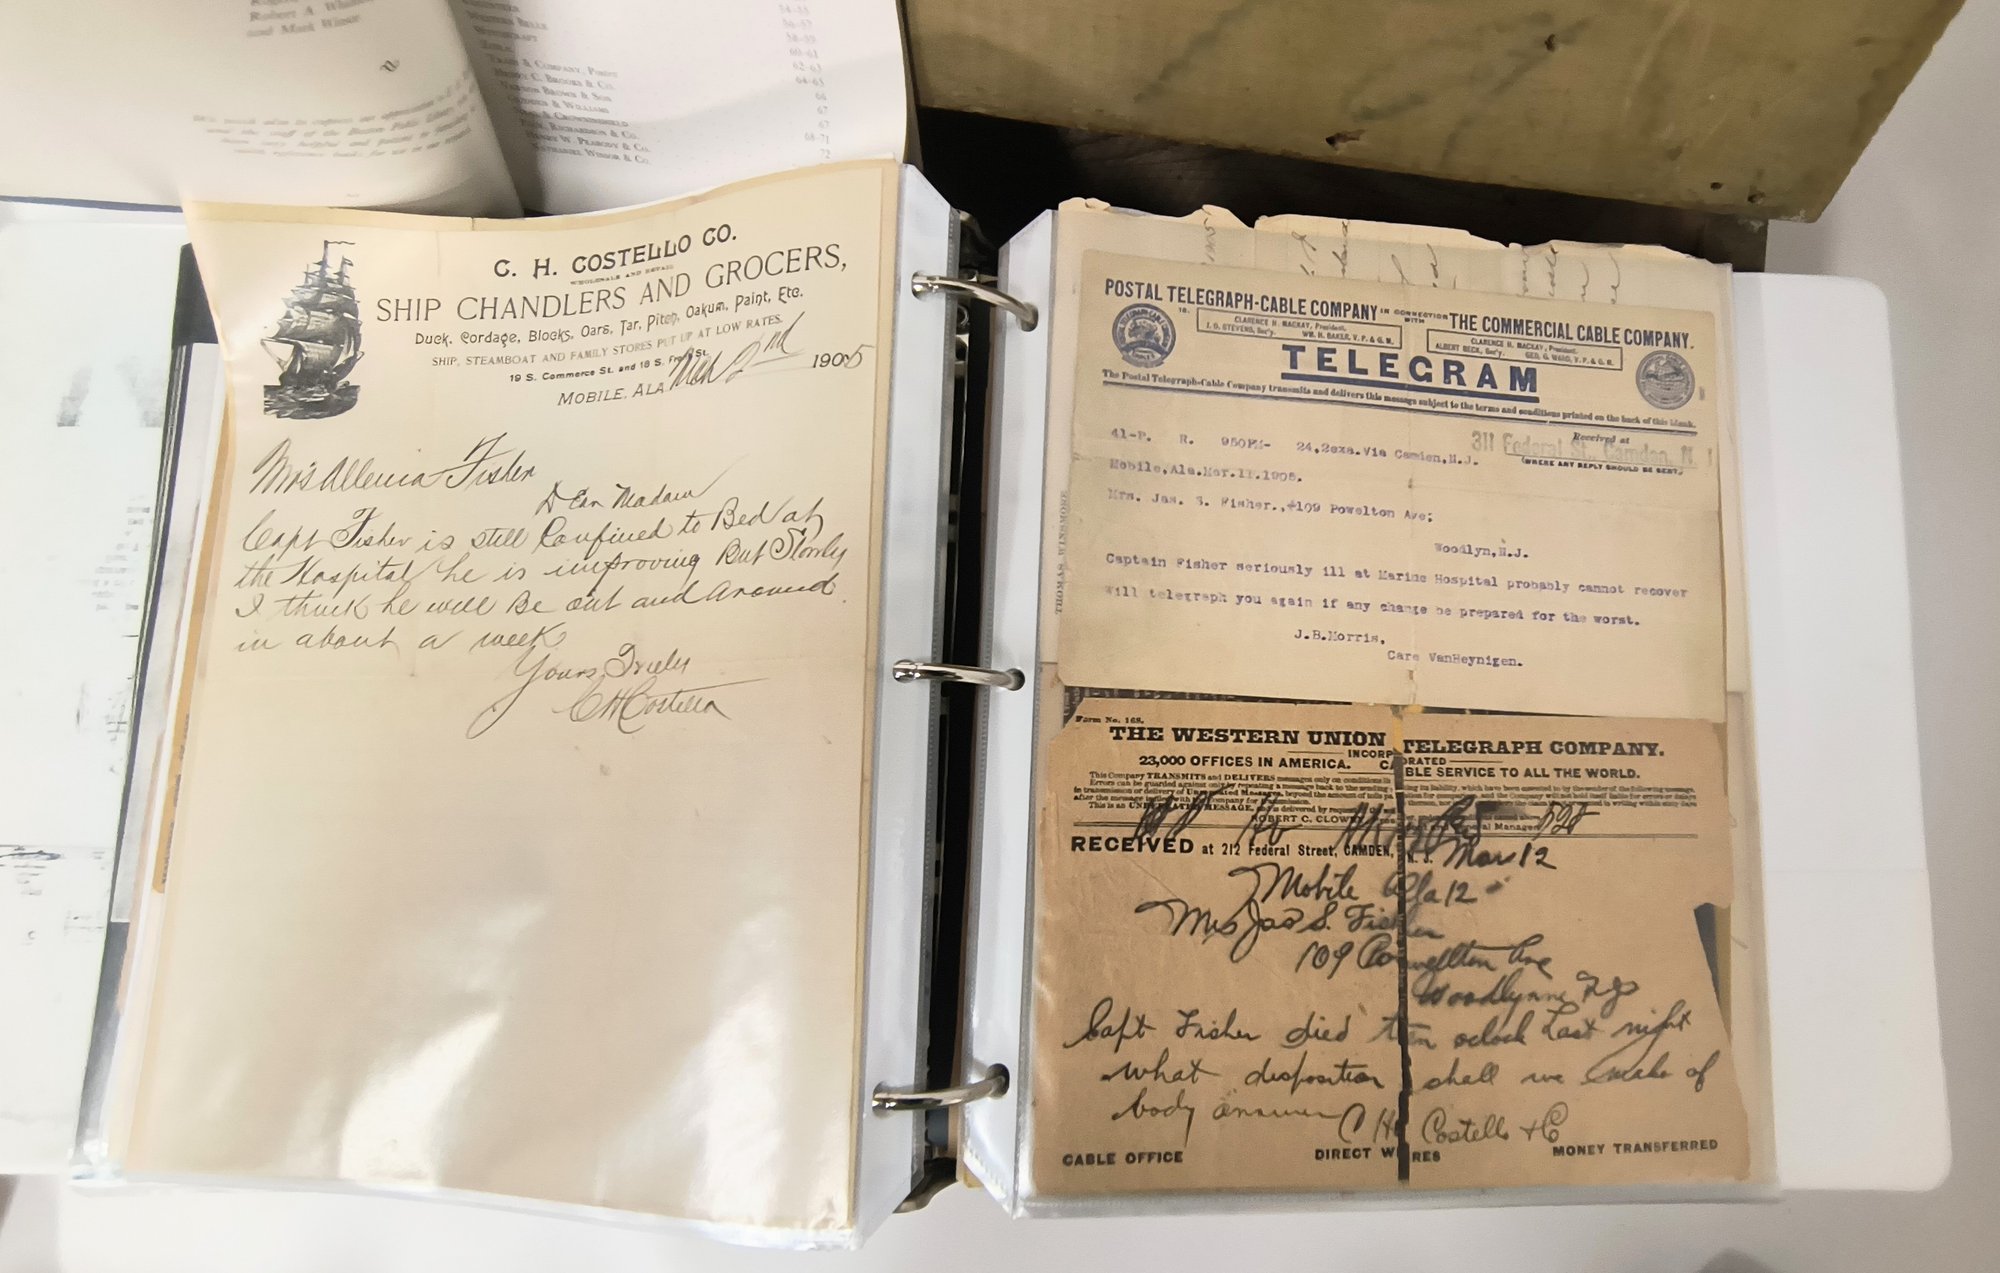 Robert A
and Mark Winsor
54-55
WESTERN BELLE 56-57
WITCHCRAFT 58-59
60-61
& COMPANY, 62-63
HENRY C. BROOKS & CO. 64-65
BROWN & SON 66
& WILLIAMS 67
& CROWNINSHIELD 67
RICHARDSON & CO. 68-71
HENRY W. PEABODY & CO. 72
NATHANIEL WINSOR & CO.
C. H. COSTELLO CO.
WHOLESALE AND RETAIL
SHIP CHANDLERS AND GROCERS,
Duck, Cordage, Blocks, Oars, Tar, Pitch, Oakum, Paint, Etc.
SHIP, STEAMBOAT AND FAMILY STORES PUT UP AT LOW RATES.
19 S. Commerce St. and 18 S. Front St.
MOBILE, ALA. Mch 2nd 1905
Mrs Allema Fisher
Dear Madam
Capt Fisher is still Confined to Bed at
the Hospital he is improving But Slowly
I think he will Be out and around
in about a week
Yours Truly
C H Costello
POSTAL TELEGRAPH-CABLE COMPANY IN CONNECTION WITH THE COMMERCIAL CABLE COMPANY.
CLARENCE H. MACKAY, President.
J. O. STEVENS, Sec'y. WM. H. BAKER, V. P. & G. M.
CLARENCE H. MACKAY, President.
ALBERT BECK, Sec'y. GEO. G. WARD, V. P. & G. M.
TELEGRAM
The Postal Telegraph-Cable Company transmits and delivers this message subject to the terms and conditions printed on the back of this blank.
Received at
311 Federal St., Camden, N.
(WHERE ANY REPLY SHOULD BE SENT)
41-P. R. 950PM- 24,2exa.Via Camden,N.J.
Mobile,Ala.Mar.11.1905.
Mrs. Jas. S. Fisher.,#109 Powelton Ave;
Woodlyn,N.J.
Captain Fisher seriously ill at Marine Hospital probably cannot recover
will telegraph you again if any change be prepared for the worst.
J.B.Morris,
Care VanHeynigen.
THOMAS WINSMORE
Form No. 168.
THE WESTERN UNION TELEGRAPH COMPANY.
INCORPORATED
23,000 OFFICES IN AMERICA. CABLE SERVICE TO ALL THE WORLD.
This Company TRANSMITS and DELIVERS messages only on conditions
Errors can be guarded against only by repeating a message back to the sending
ROBERT C. CLOW
RECEIVED at 212 Federal Street, CAMDEN, N. J. Mar 12
Mobile Ala 12
Mrs Jas S. Fisher
109 Powellton Ave
Woodlynne NJ
Capt Fisher died ten oclock last night
what disposition shall we make of
body answer
C H Costello & Co
CABLE OFFICE DIRECT WIRES MONEY TRANSFERRED